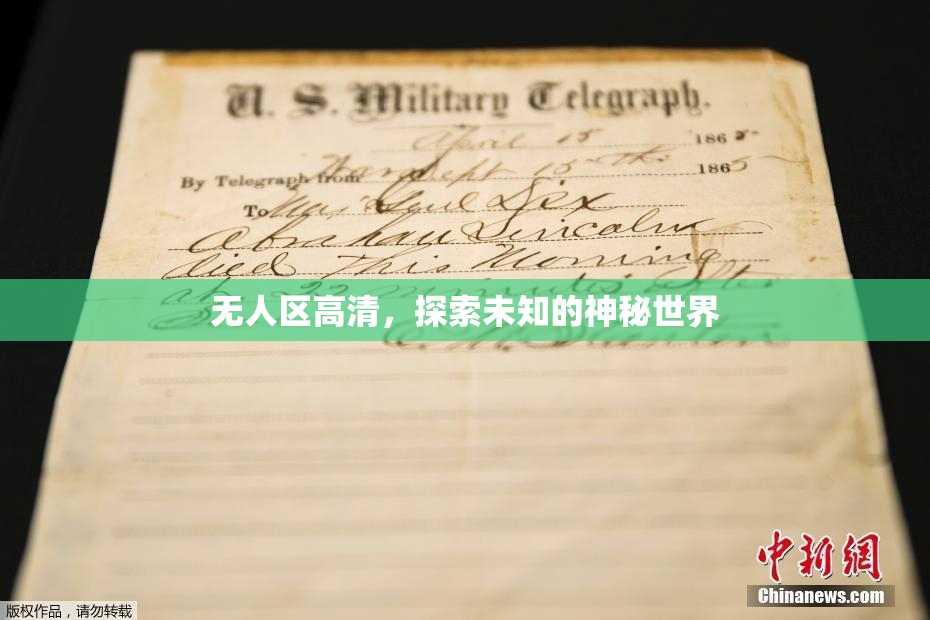 U. S. Military Telegraph.
April 15 1865
By Telegraph from War Dept 15th 1865
To Maj Genl Dix
Abraham Lincoln
died This Morning
at 22 minutes after
无人区高清，探索未知的神秘世界
中新网
Chinanews.com
版权作品，请勿转载